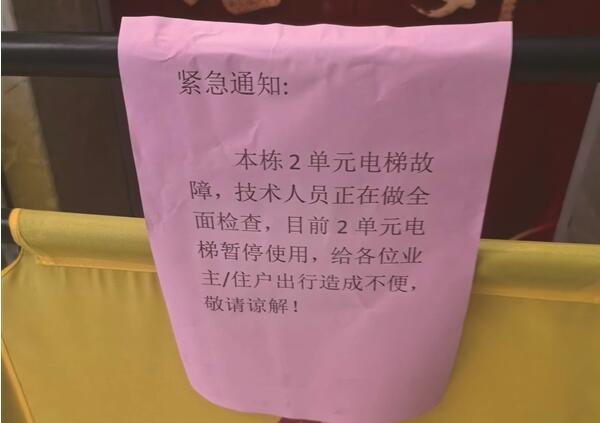 紧急通知:
本栋 2 单元电梯故
障，技术人员正在做全
面检查，目前 2 单元电
梯暂停使用，给各位业
主/住户出行造成不便，
敬请谅解！